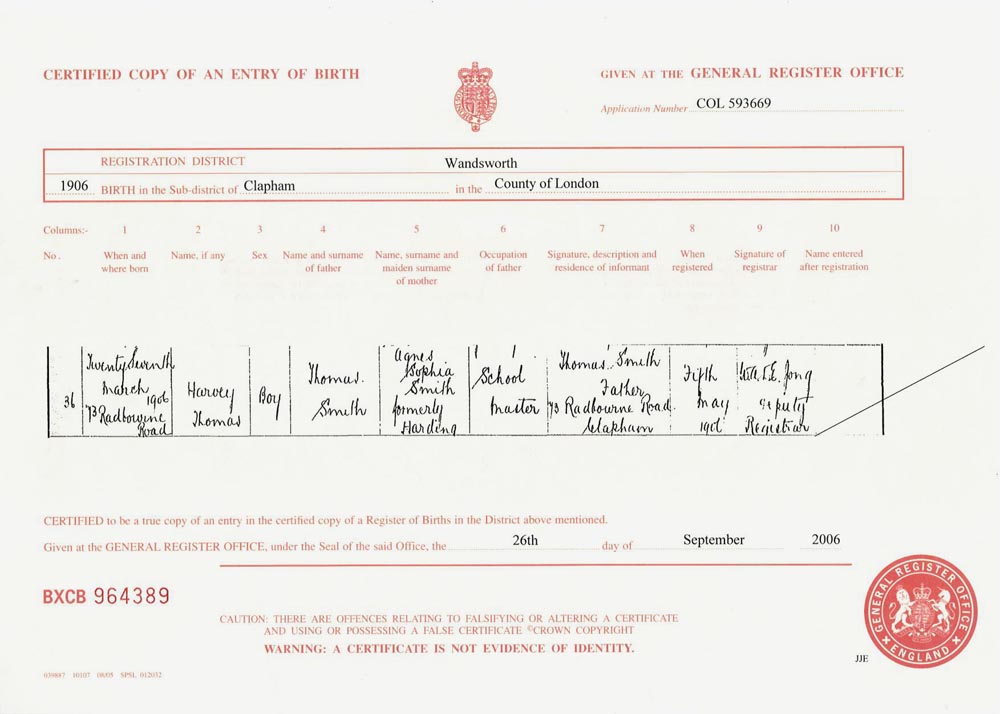 CERTIFIED COPY OF AN ENTRY OF BIRTH
GIVEN AT THE GENERAL REGISTER OFFICE
Application Number COL 593669
REGISTRATION DISTRICT Wandsworth
1906 BIRTH in the Sub-district of Clapham in the County of London
Columns:- 1 2 3 4 5 6 7 8 9 10
No. When and where born
Name, if any
Sex
Name and surname of father
Name, surname and maiden surname of mother
Occupation of father
Signature, description and residence of informant
When registered
Signature of registrar
Name entered after registration
36
Twenty Seventh
March
1906
73 Radbourne
Road
Harvey
Thomas
Boy
Thomas
Smith
Agnes
Sophia
Smith
formerly
Harding
School
Master
Thomas Smith
Father
73 Radbourne Road
Clapham
Fifth
May
190
Deputy
Registrar
CERTIFIED to be a true copy of an entry in the certified copy of a Register of Births in the District above mentioned.
Given at the GENERAL REGISTER OFFICE, under the Seal of the said Office, the 26th day of September 2006
BXCB 964389
CAUTION: THERE ARE OFFENCES RELATING TO FALSIFYING OR ALTERING A CERTIFICATE
AND USING OR POSSESSING A FALSE CERTIFICATE ©CROWN COPYRIGHT
WARNING: A CERTIFICATE IS NOT EVIDENCE OF IDENTITY.
GENERAL REGISTER OFFICE
ENGLAND
JJE
10107 08/05 SPSL 012032